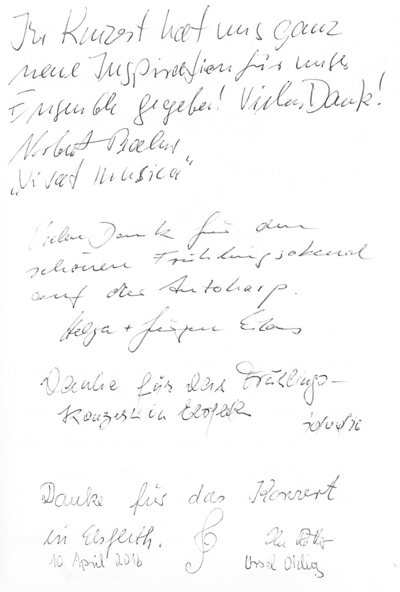 Ihr Konzert hat uns ganz
neue Inspiration für unser
Ensemble gegeben! Vielen Dank!
Norbert
„Vivat musica“
Vielen Dank für den
schönen Frühlingsabend
auf der Autoharp.
Helga + Jürgen
Danke für das Frühlings-
Konzert in
Danke für das Konzert
in Elsfleth.
10. April 2016